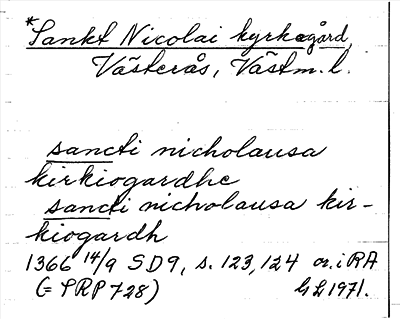 *Sankt Nicolai kyrkogård,
Västerås, Västm. l.
sancti nicholausa
kirkiogardhe
sancti nicholausa kir-
kiogardh
1366 14/9 SD9, s. 123, 124 or. i RA
(= SRP 728) GL 1971.